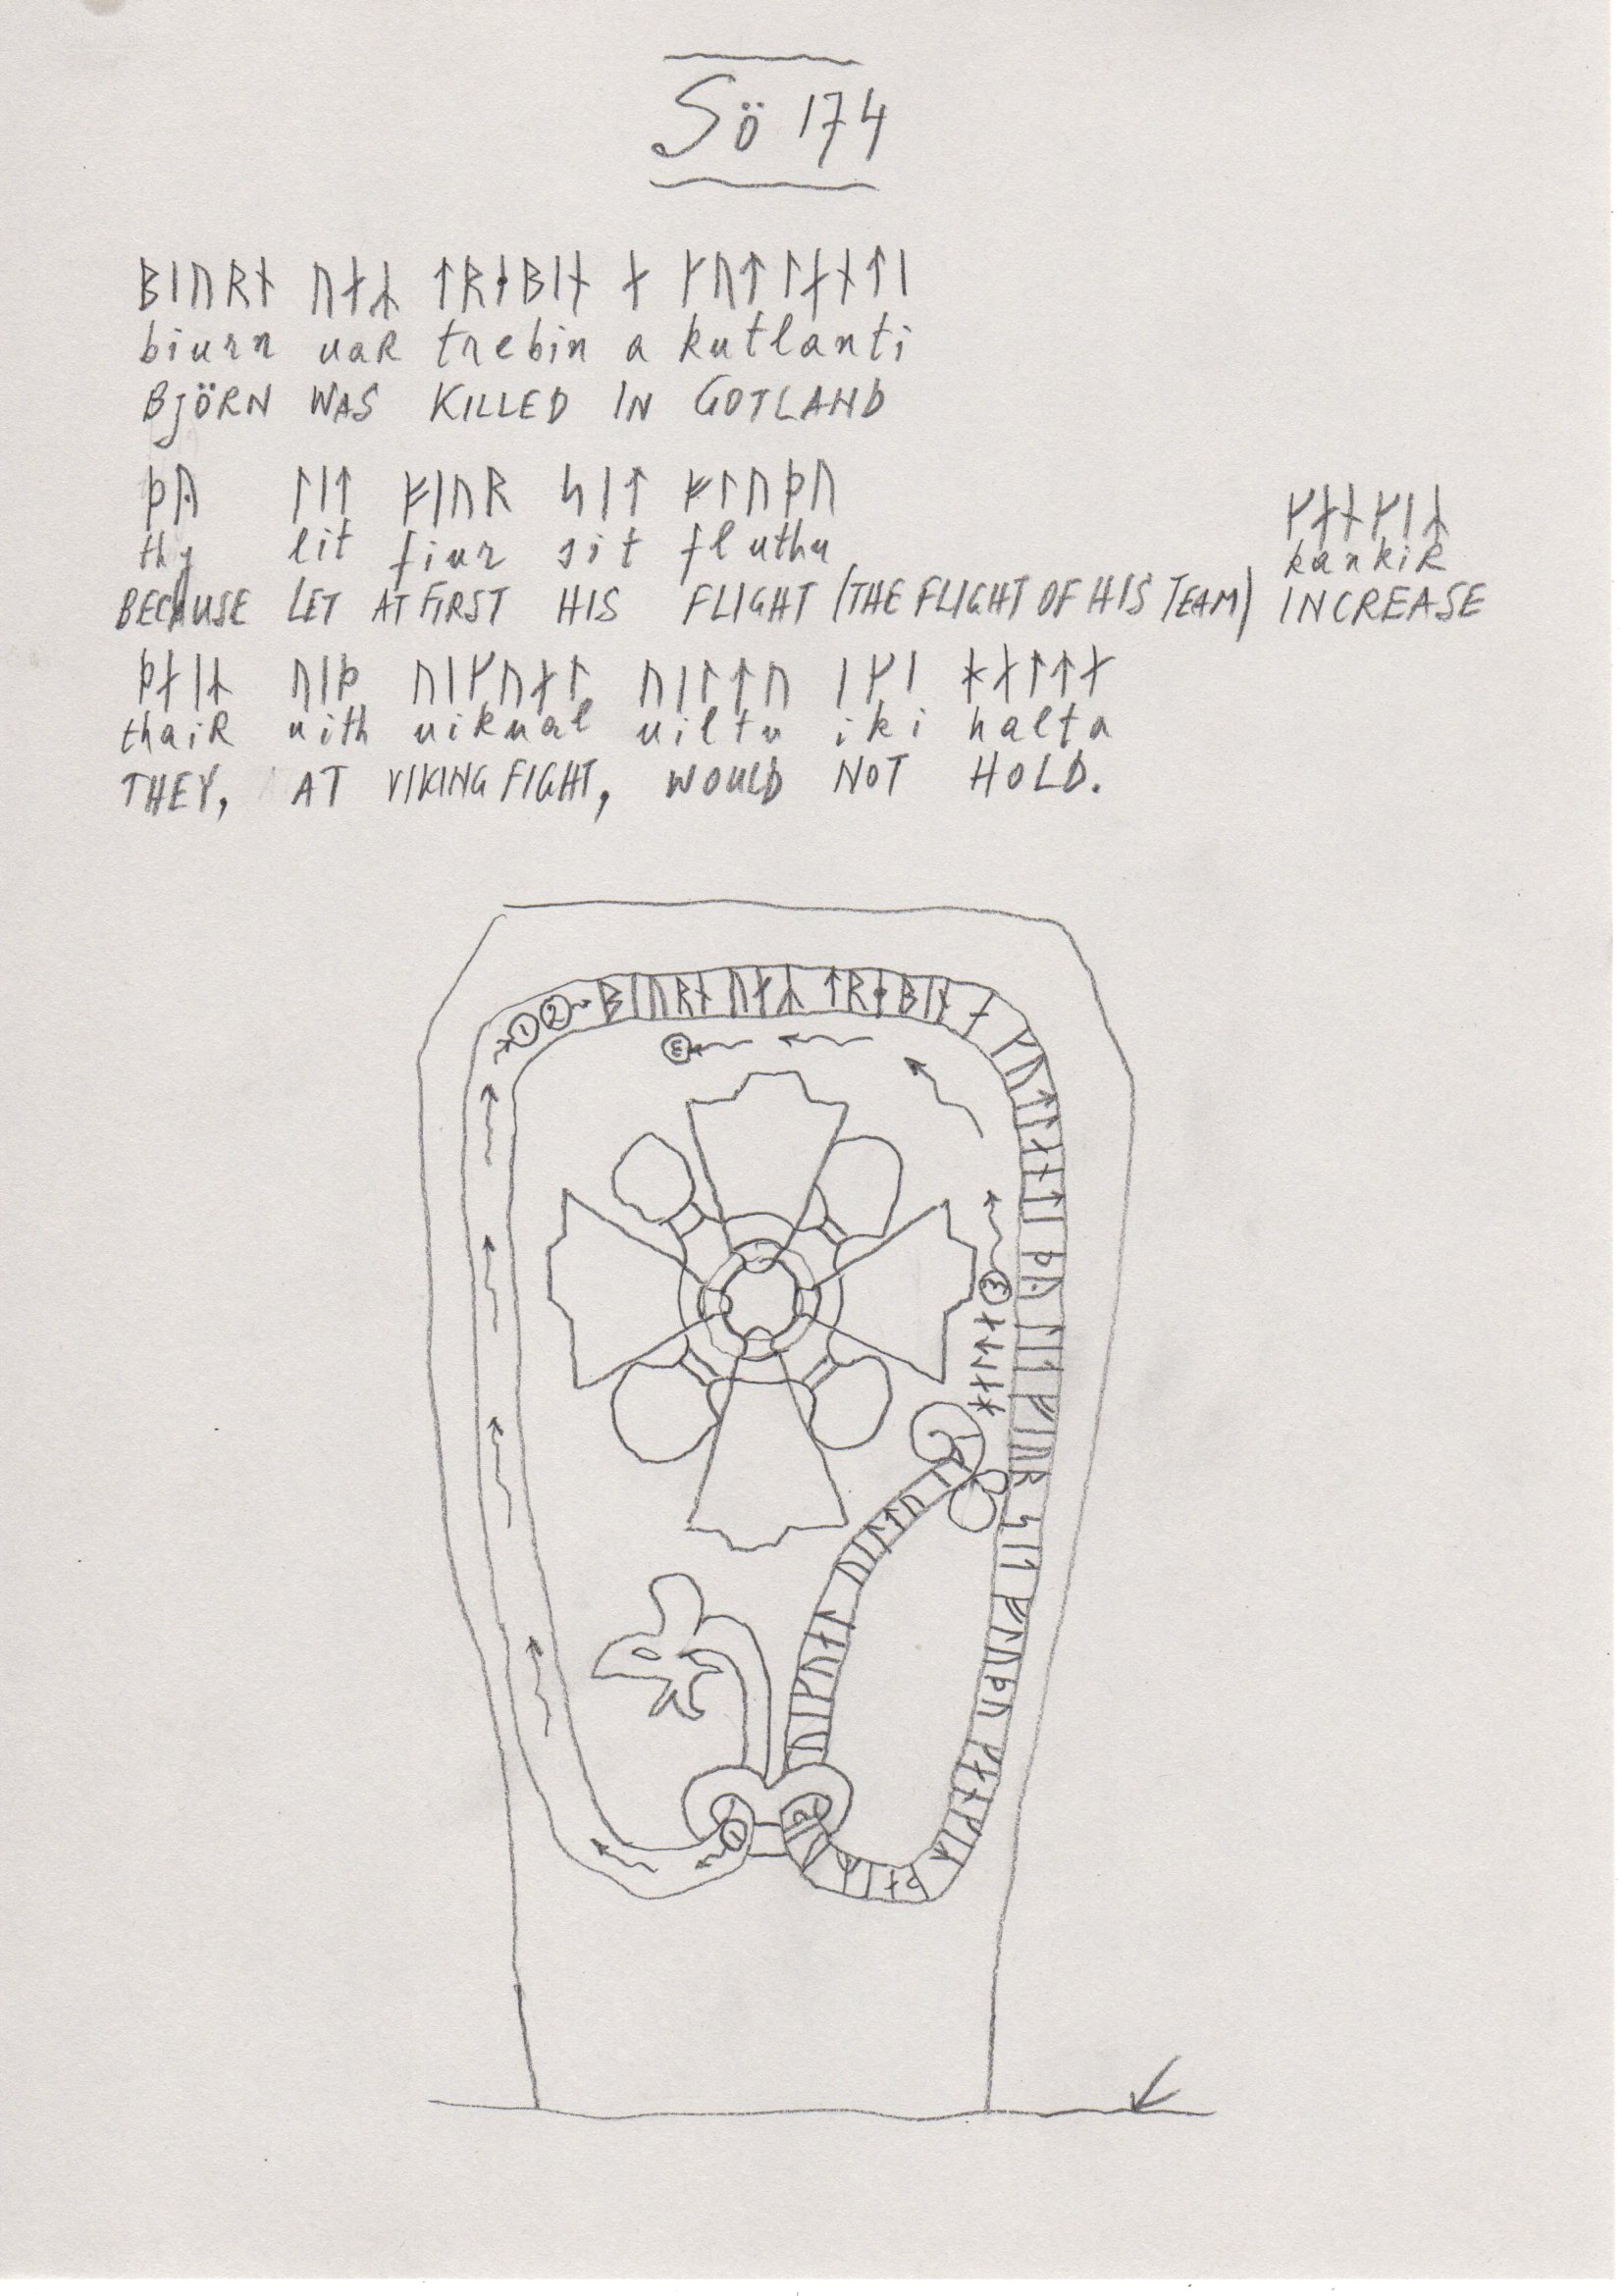 Sö 174
ᛒᛁᚢᚱᚾ ᚢᛅᛦ ᛏᚱᛂᛒᛁᚾ ᛅ ᚴᚢᛏᛚᛅᚾᛏᛁ
biurn uaR trebin a kutlanti
BJÖRN WAS KILLED IN GOTLAND
ᚦᚤ ᛚᛁᛏ ᚠᛁᚢᚱ ᛋᛁᛏ ᚠᛚᚢᚦᚢ ᚴᛅᚾᚴᛁᛦ
thy lit fiur sit fluthu kankiR
BECAUSE LET AT FIRST HIS FLIGHT (THE FLIGHT OF HIS TEAM) INCREASE
ᚦᛅᛁᛦ ᚢᛁᚦ ᚢᛁᚴᚢᛅᛚ ᚢᛁᛚᛏᚢ ᛁᚴᛁ ᚼᛅᛚᛏᛅ
thaiR uith uikual uiltu iki halta
THEY, AT VIKING FIGHT, WOULD NOT HOLD.
① ② ᛒᛁᚢᚱᚾ ᚢᛅᛦ ᛏᚱᛂᛒᛁᚾ ᛅ ᚴᚢᛏᛚᛅᚾᛏᛁ ᚦᚤ ᛚᛁᛏ ᚠᛁᚢᚱ ᛋᛁᛏ ᚠᛚᚢᚦᚢ ᚴᛅᚾᚴᛁᛦ ᚦᛅᛁᛦ
ᚢᛁᚴᚢᛅᛚ ᚢᛁᛚᛏᚢ
ᚼᛅᛚᛏᛅ ③
③
①
②